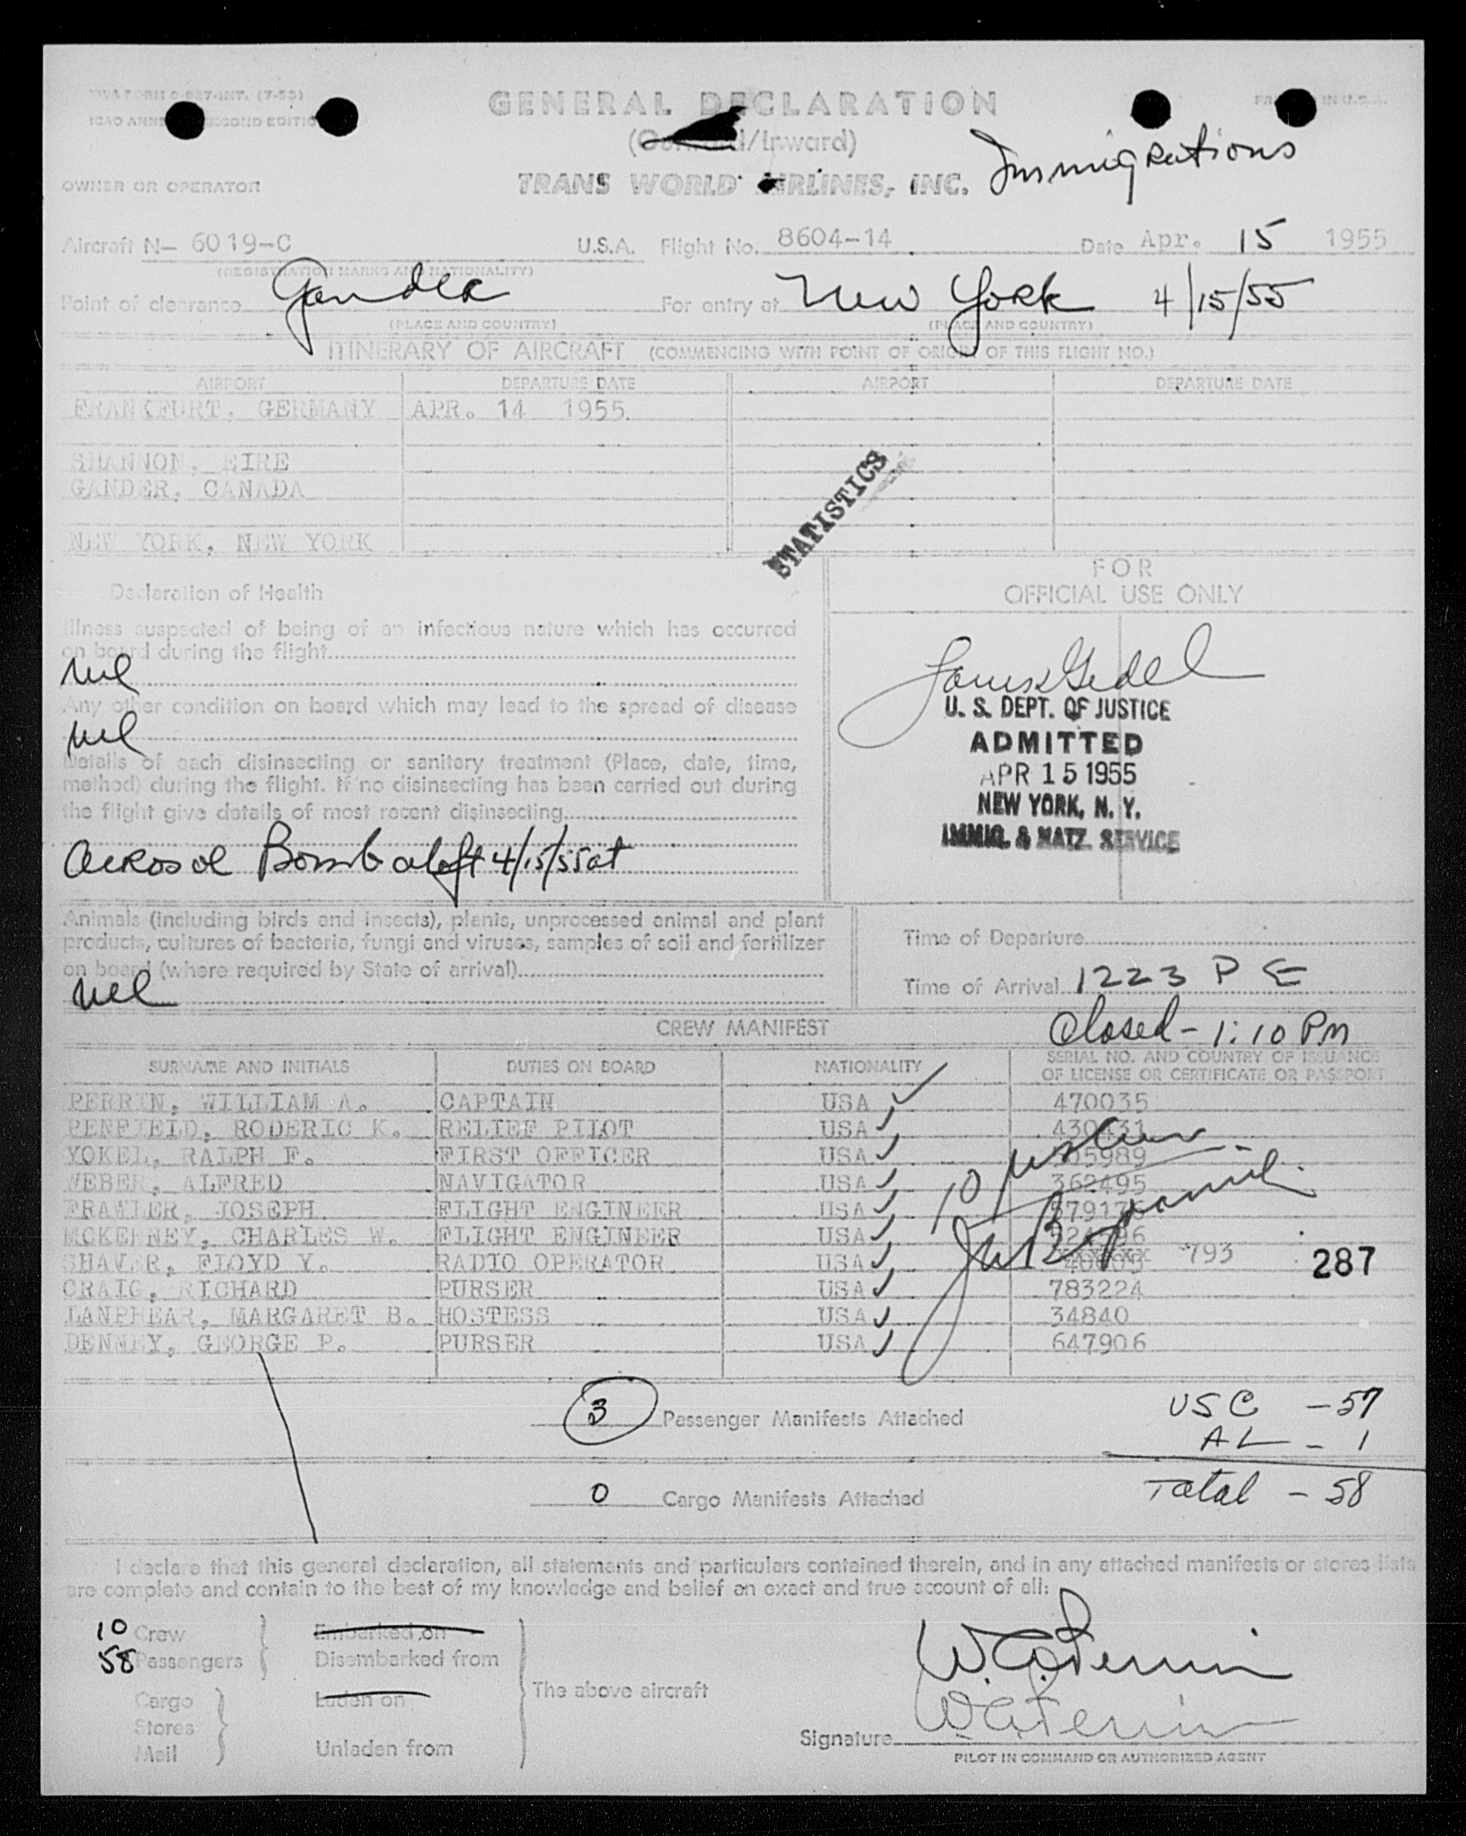 TWA FORM (7-53)
ICAO SECOND EDITION
GENERAL DECLARATION
(Outward/Inward)
TRANS WORLD AIRLINES, INC.
Immigrations
OWNER OR OPERATOR
Aircraft N- 6019-C U.S.A. Flight No. 8604-14 Date Apr. 15 1955
(REGISTRATION MARKS AND NATIONALITY)
Point of clearance Gander For entry at New York 4/15/55
(PLACE AND COUNTRY) (PLACE AND COUNTRY)
ITINERARY OF AIRCRAFT (COMMENCING WITH POINT OF ORIGIN OF THIS FLIGHT NO.)
AIRPORT DEPARTURE DATE AIRPORT DEPARTURE DATE
FRANKFURT, GERMANY APR. 14 1955
SHANNON, EIRE
GANDER, CANADA
NEW YORK, NEW YORK
STATISTICS
Declaration of Health
FOR
OFFICIAL USE ONLY
Illness suspected of being of an infectious nature which has occurred
on board during the flight
nil
Any other condition on board which may lead to the spread of disease
nil
Details of each disinsecting or sanitary treatment (Place, date, time,
method) during the flight. If no disinsecting has been carried out during
the flight give details of most recent disinsecting
Aerosol Bomb aloft 4/15/55 at
U. S. DEPT. OF JUSTICE
ADMITTED
APR 15 1955
NEW YORK, N. Y.
IMMIG. & NATZ. SERVICE
Animals (including birds and insects), plants, unprocessed animal and plant
products, cultures of bacteria, fungi and viruses, samples of soil and fertilizer
on board (where required by State of arrival)
nil
Time of Departure
Time of Arrival 1223 P E
Closed - 1:10 PM
CREW MANIFEST
SURNAME AND INITIALS DUTIES ON BOARD NATIONALITY SERIAL NO. AND COUNTRY OF ISSUANCE
OF LICENSE OR CERTIFICATE OR PASSPORT
PERRIN, WILLIAM A. CAPTAIN USA 470035
PENFIELD, RODERIC K. RELIEF PILOT USA 430431
YOKEL, RALPH F. FIRST OFFICER USA
WEBER, ALFRED NAVIGATOR USA 362495
FRAWLER, JOSEPH FLIGHT ENGINEER USA
MCKENNEY, CHARLES W. FLIGHT ENGINEER USA
SHAVER, FLOYD Y. RADIO OPERATOR USA 793
287
CRAIG, RICHARD PURSER USA 783224
LANPHEAR, MARGARET B. HOSTESS USA 34840
DENNEY, GEORGE P. PURSER USA 647906
3 Passenger Manifests Attached
USC - 57
AL - 1
0 Cargo Manifests Attached
Total - 58
I declare that this general declaration, all statements and particulars contained therein, and in any attached manifests or stores lists
are complete and contain to the best of my knowledge and belief an exact and true account of all:
10 Crew Embarked on
58 Passengers Disembarked from
The above aircraft
Cargo Laden on
Stores
Mail Unladen from
W. A. Perrin
W. A. Perrin
Signature
PILOT IN COMMAND OR AUTHORIZED AGENT